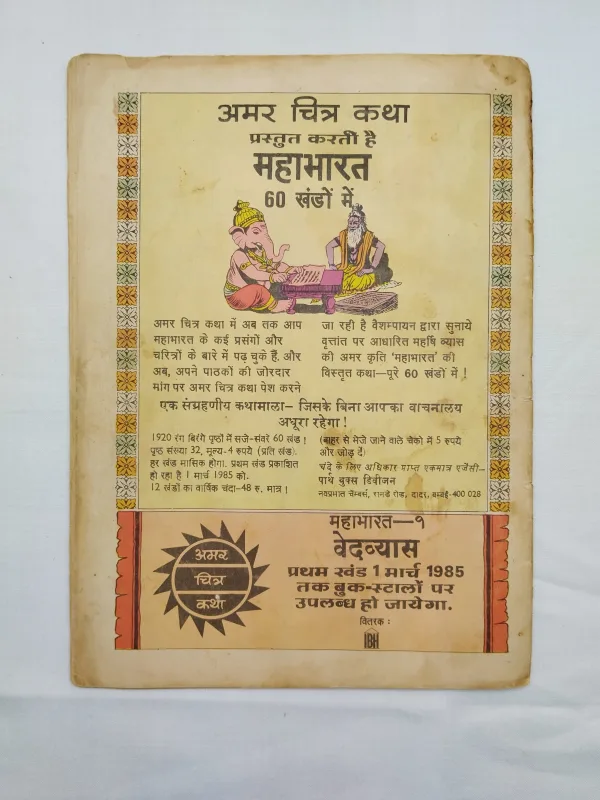 अमर चित्र कथा
प्रस्तुत करती है
महाभारत
60 खंडों में
अमर चित्र कथा में अब तक आप
महाभारत के कई प्रसंगों और
चरित्रों के बारे में पढ़ चुके हैं. और
अब, अपने पाठकों की जोरदार
मांग पर अमर चित्र कथा पेश करने
जा रही है वैशम्पायन द्वारा सुनाये
वृत्तांत पर आधारित महर्षि व्यास
की अमर कृति 'महाभारत' की
विस्तृत कथा—पूरे 60 खंडों में !
एक संग्रहणीय कथामाला— जिसके बिना आपका वाचनालय
अधूरा रहेगा !
1920 रंग बिरंगे पृष्ठों में सजे-संवरे 60 खंड !
पृष्ठ संख्या 32, मूल्य-4 रुपये (प्रति खंड).
हर खंड मासिक होगा. प्रथम खंड प्रकाशित
हो रहा है 1 मार्च 1985 को.
12 खंडों का वार्षिक चंदा-48 रु. मात्र !
(बाहर से भेजे जाने वाले चेकों में 5 रुपये
और जोड़ दें)
चंदे के लिए अधिकार प्राप्त एकमात्र एजेंसी—
पार्थ बुक्स डिवीजन
नवप्रभात चेम्बर्स, रानडे रोड, दादर, बम्बई-400 028
महाभारत—१
वेदव्यास
प्रथम खंड 1 मार्च 1985
तक बुक-स्टालों पर
उपलब्ध हो जायेगा.
वितरक :
IBH
अमर
चित्र
कथा